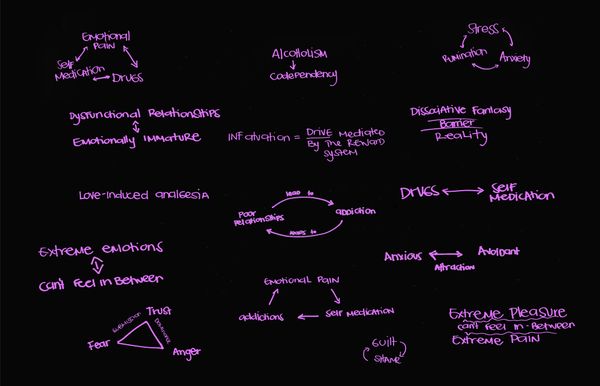 Emotional
Pain
Self
Medication
Drugs
Alcoholism
Codependency
Stress
Rumination
Anxiety
Dysfunctional Relationships
Emotionally Immature
Infatuation = Drive Mediated
By The Reward
System
Dissociative Fantasy
Barrier
Reality
Love-Induced analgesia
lead to
Poor
Relationships
addiction
leads to
Drugs
Self
Medication
Extreme emotions
Can't Feel in Between
Anxious
Avoidant
Attraction
Emotional Pain
addictions
Self Medication
Extreme Pleasure
can't Feel in-Between
Extreme Pain
Trust
Fear
Anger
Guilt
Shame